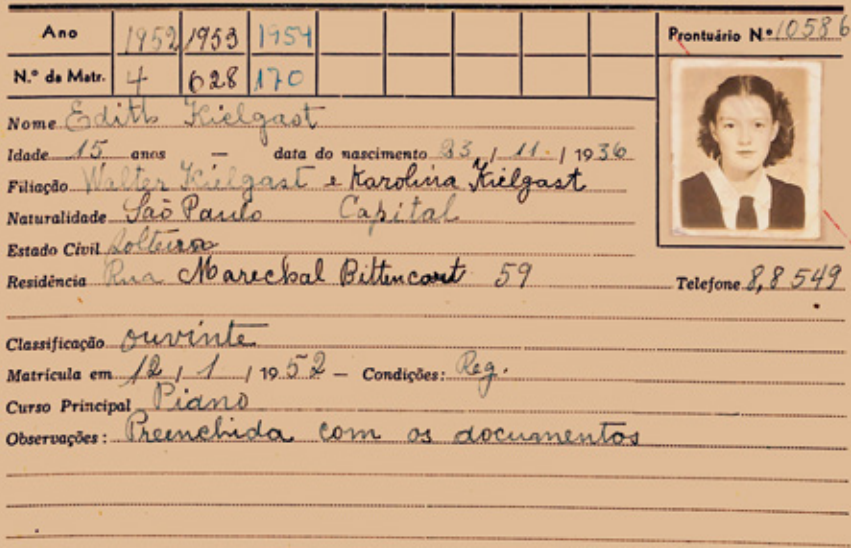 Ano 1952 1953 1954
Prontuário N.º 10586
N.º da Matr. 4 628 170
Nome Edith Kielgast
Idade 15 anos — data do nascimento 23 / 11 / 1936
Filiação Walter Kielgast e Karolina Kielgast
Naturalidade São Paulo Capital
Estado Civil Solteira
Residência Rua Marechal Bittencourt 59 Telefone 8,8549
Classificação ouvinte
Matrícula em 12 / 1 / 1952 — Condições: Reg.
Curso Principal Piano
Observações: Preenchida com os documentos